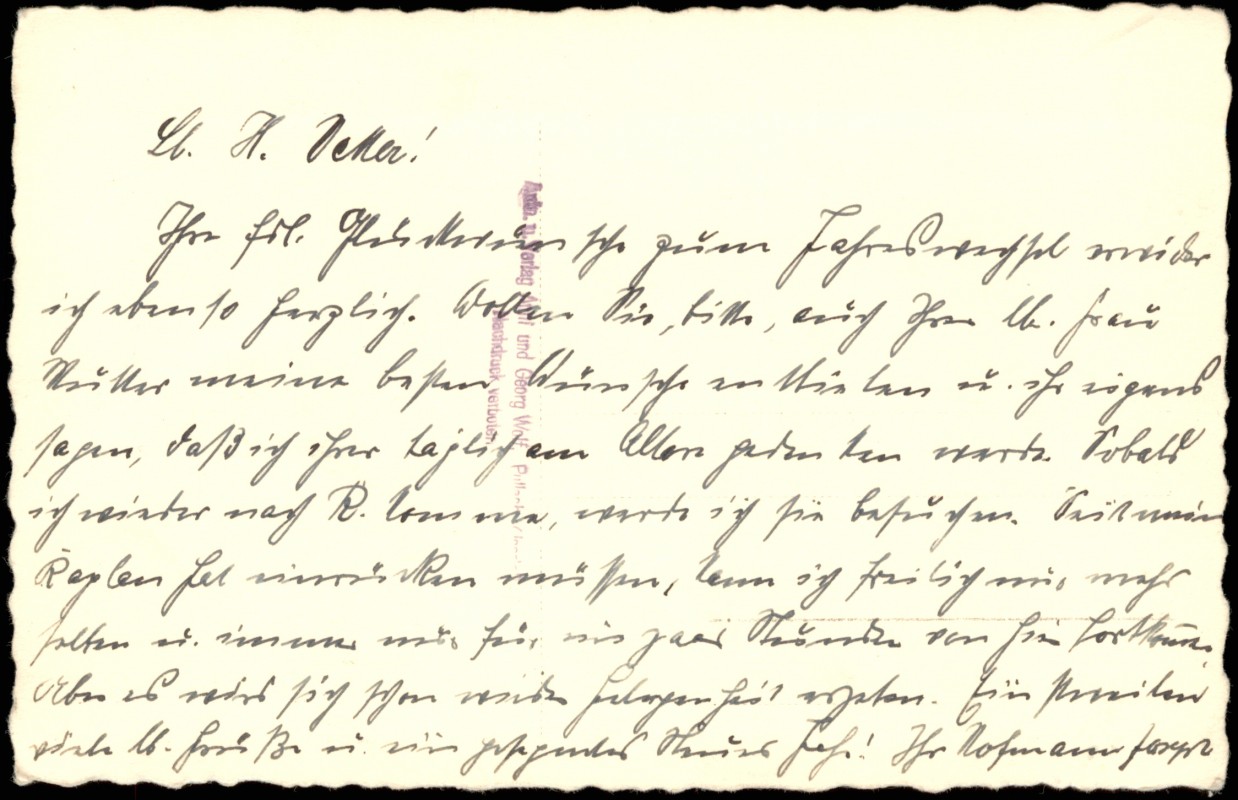 Lb. H. Vetter!
Ihre frdl. Glückwünsche zum Jahreswechsel erwider
ich ebenso herzlich. Wollen Sie, bitte, auch Ihrer lb. Frau
Mutter meine besten Wünsche entbieten u. ihr eigens
sagen, daß ich ihrer täglich am Altare gedenken werde. Sobald
ich wieder nach R. komme, werde ich sie besuchen. Seit mein
Kaplan hat einrücken müssen, kann ich freilich nur mehr
selten u. immer nur für ein paar Stunden von hier fortkommen.
Aber es wird sich schon wieder Gelegenheit ergeben. Einstweilen
viele lb. Grüße u. ein gesegnetes Neues Jahr! Ihr Josef
u. Verlag Adolf und Georg Wolf
Nachdruck verboten